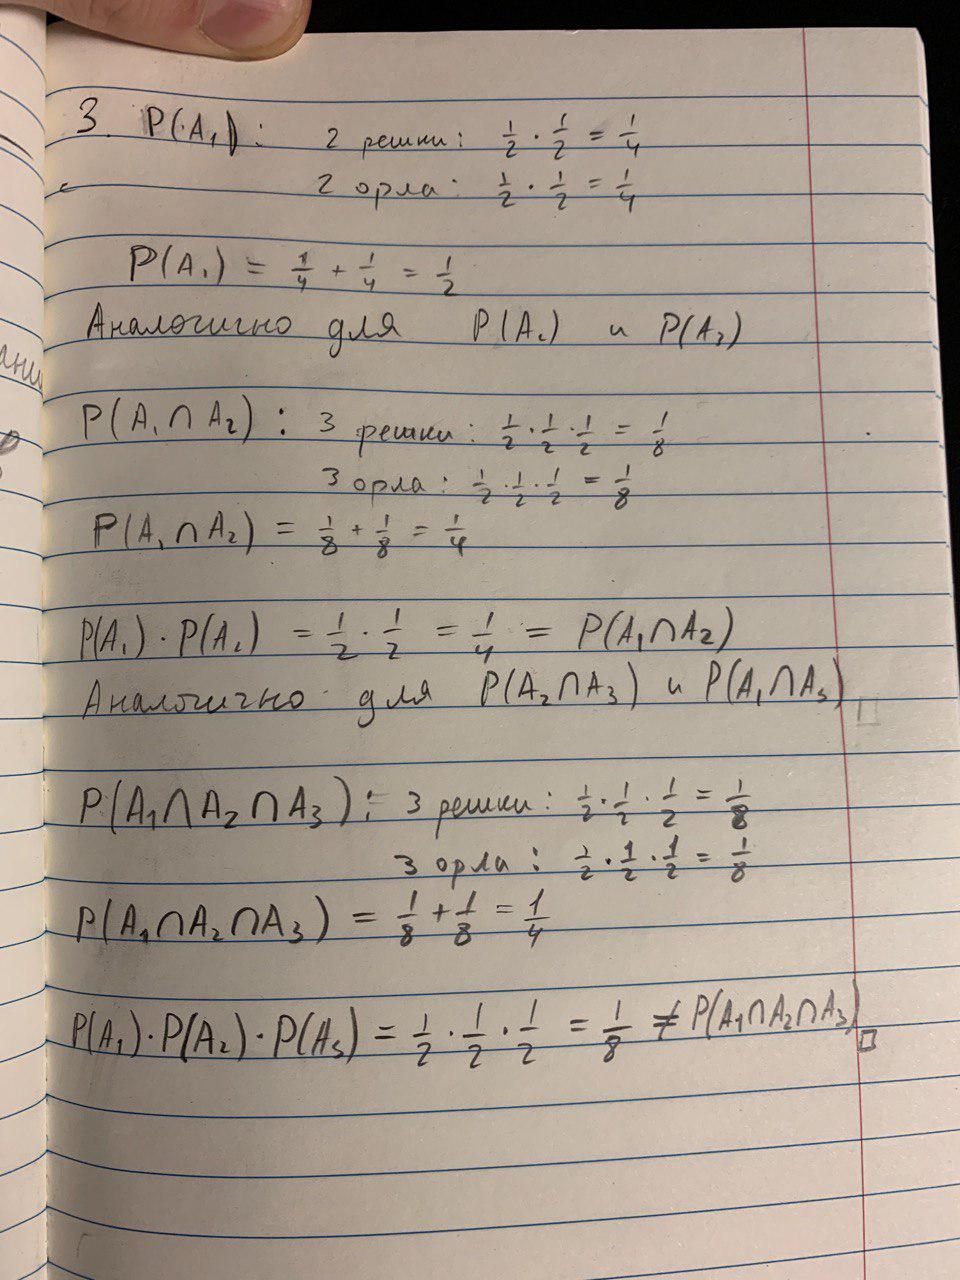 3. P(A₁): 2 решки: 1/2 · 1/2 = 1/4
2 орла: 1/2 · 1/2 = 1/4
P(A₁) = 1/4 + 1/4 = 1/2
Аналогично для P(A₂) и P(A₃)
P(A₁ ∩ A₂) : 3 решки: 1/2 · 1/2 · 1/2 = 1/8
3 орла: 1/2 · 1/2 · 1/2 = 1/8
P(A₁ ∩ A₂) = 1/8 + 1/8 = 1/4
P(A₁) · P(A₂) = 1/2 · 1/2 = 1/4 = P(A₁∩A₂)
Аналогично для P(A₂∩A₃) и P(A₁∩A₃) □
P(A₁∩A₂∩A₃): 3 решки: 1/2 · 1/2 · 1/2 = 1/8
3 орла: 1/2 · 1/2 · 1/2 = 1/8
P(A₁∩A₂∩A₃) = 1/8 + 1/8 = 1/4
P(A₁)·P(A₂)·P(A₃) = 1/2 · 1/2 · 1/2 = 1/8 ≠ P(A₁∩A₂∩A₃) □